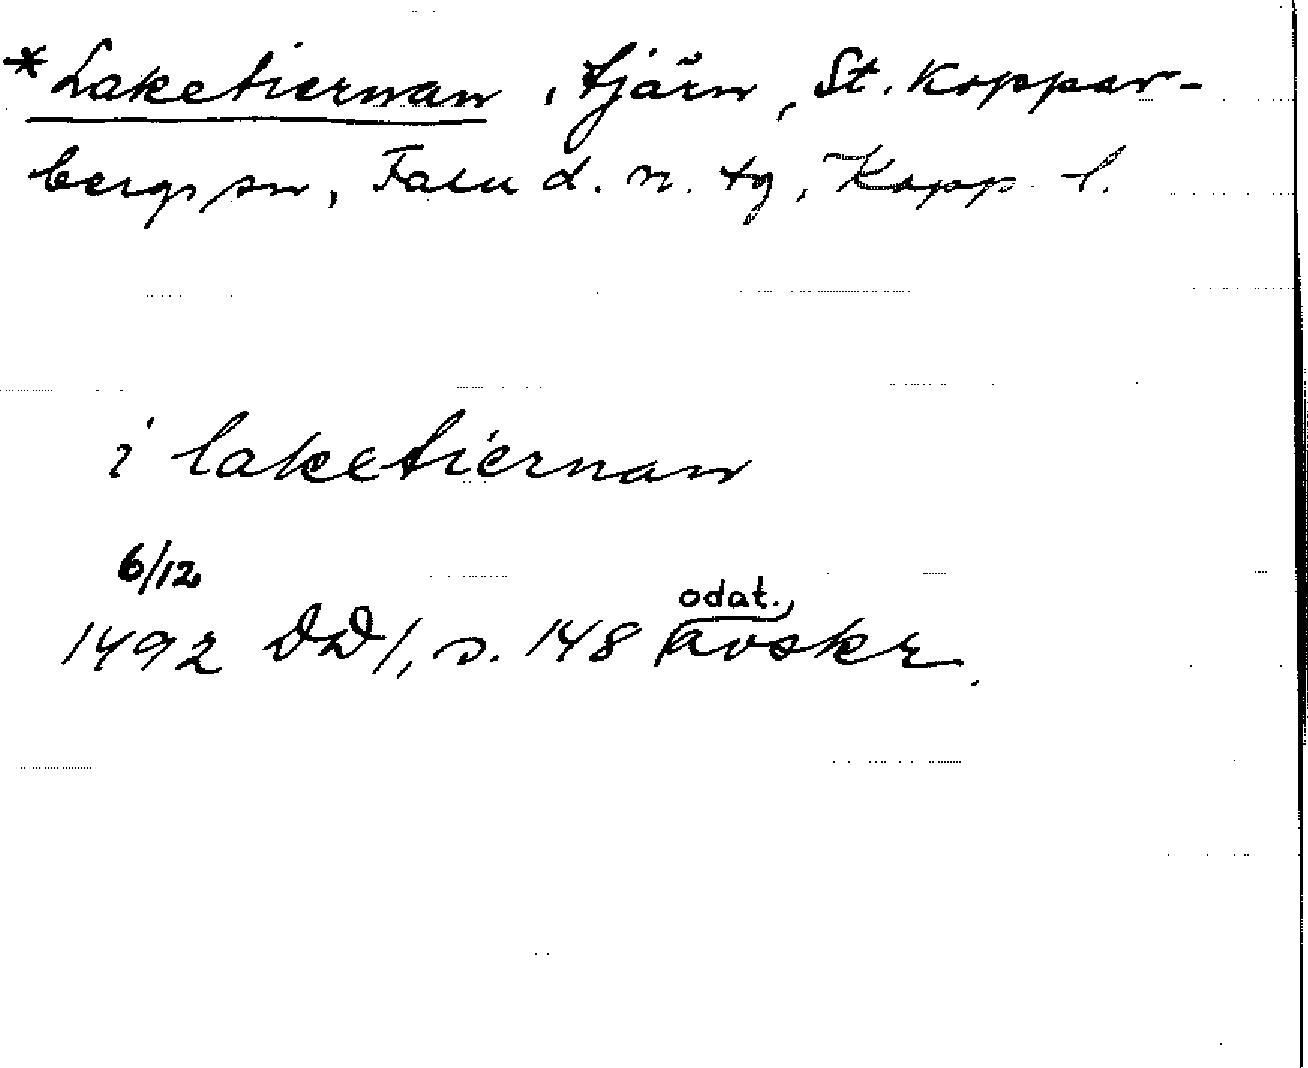 *Laketiernan, tjärn, St. Koppar-
bergs sn, Falu d. n. tg, Kopp. l.
i laketiernan
6/12
1492 DD 1, s. 148 odat. avskr.